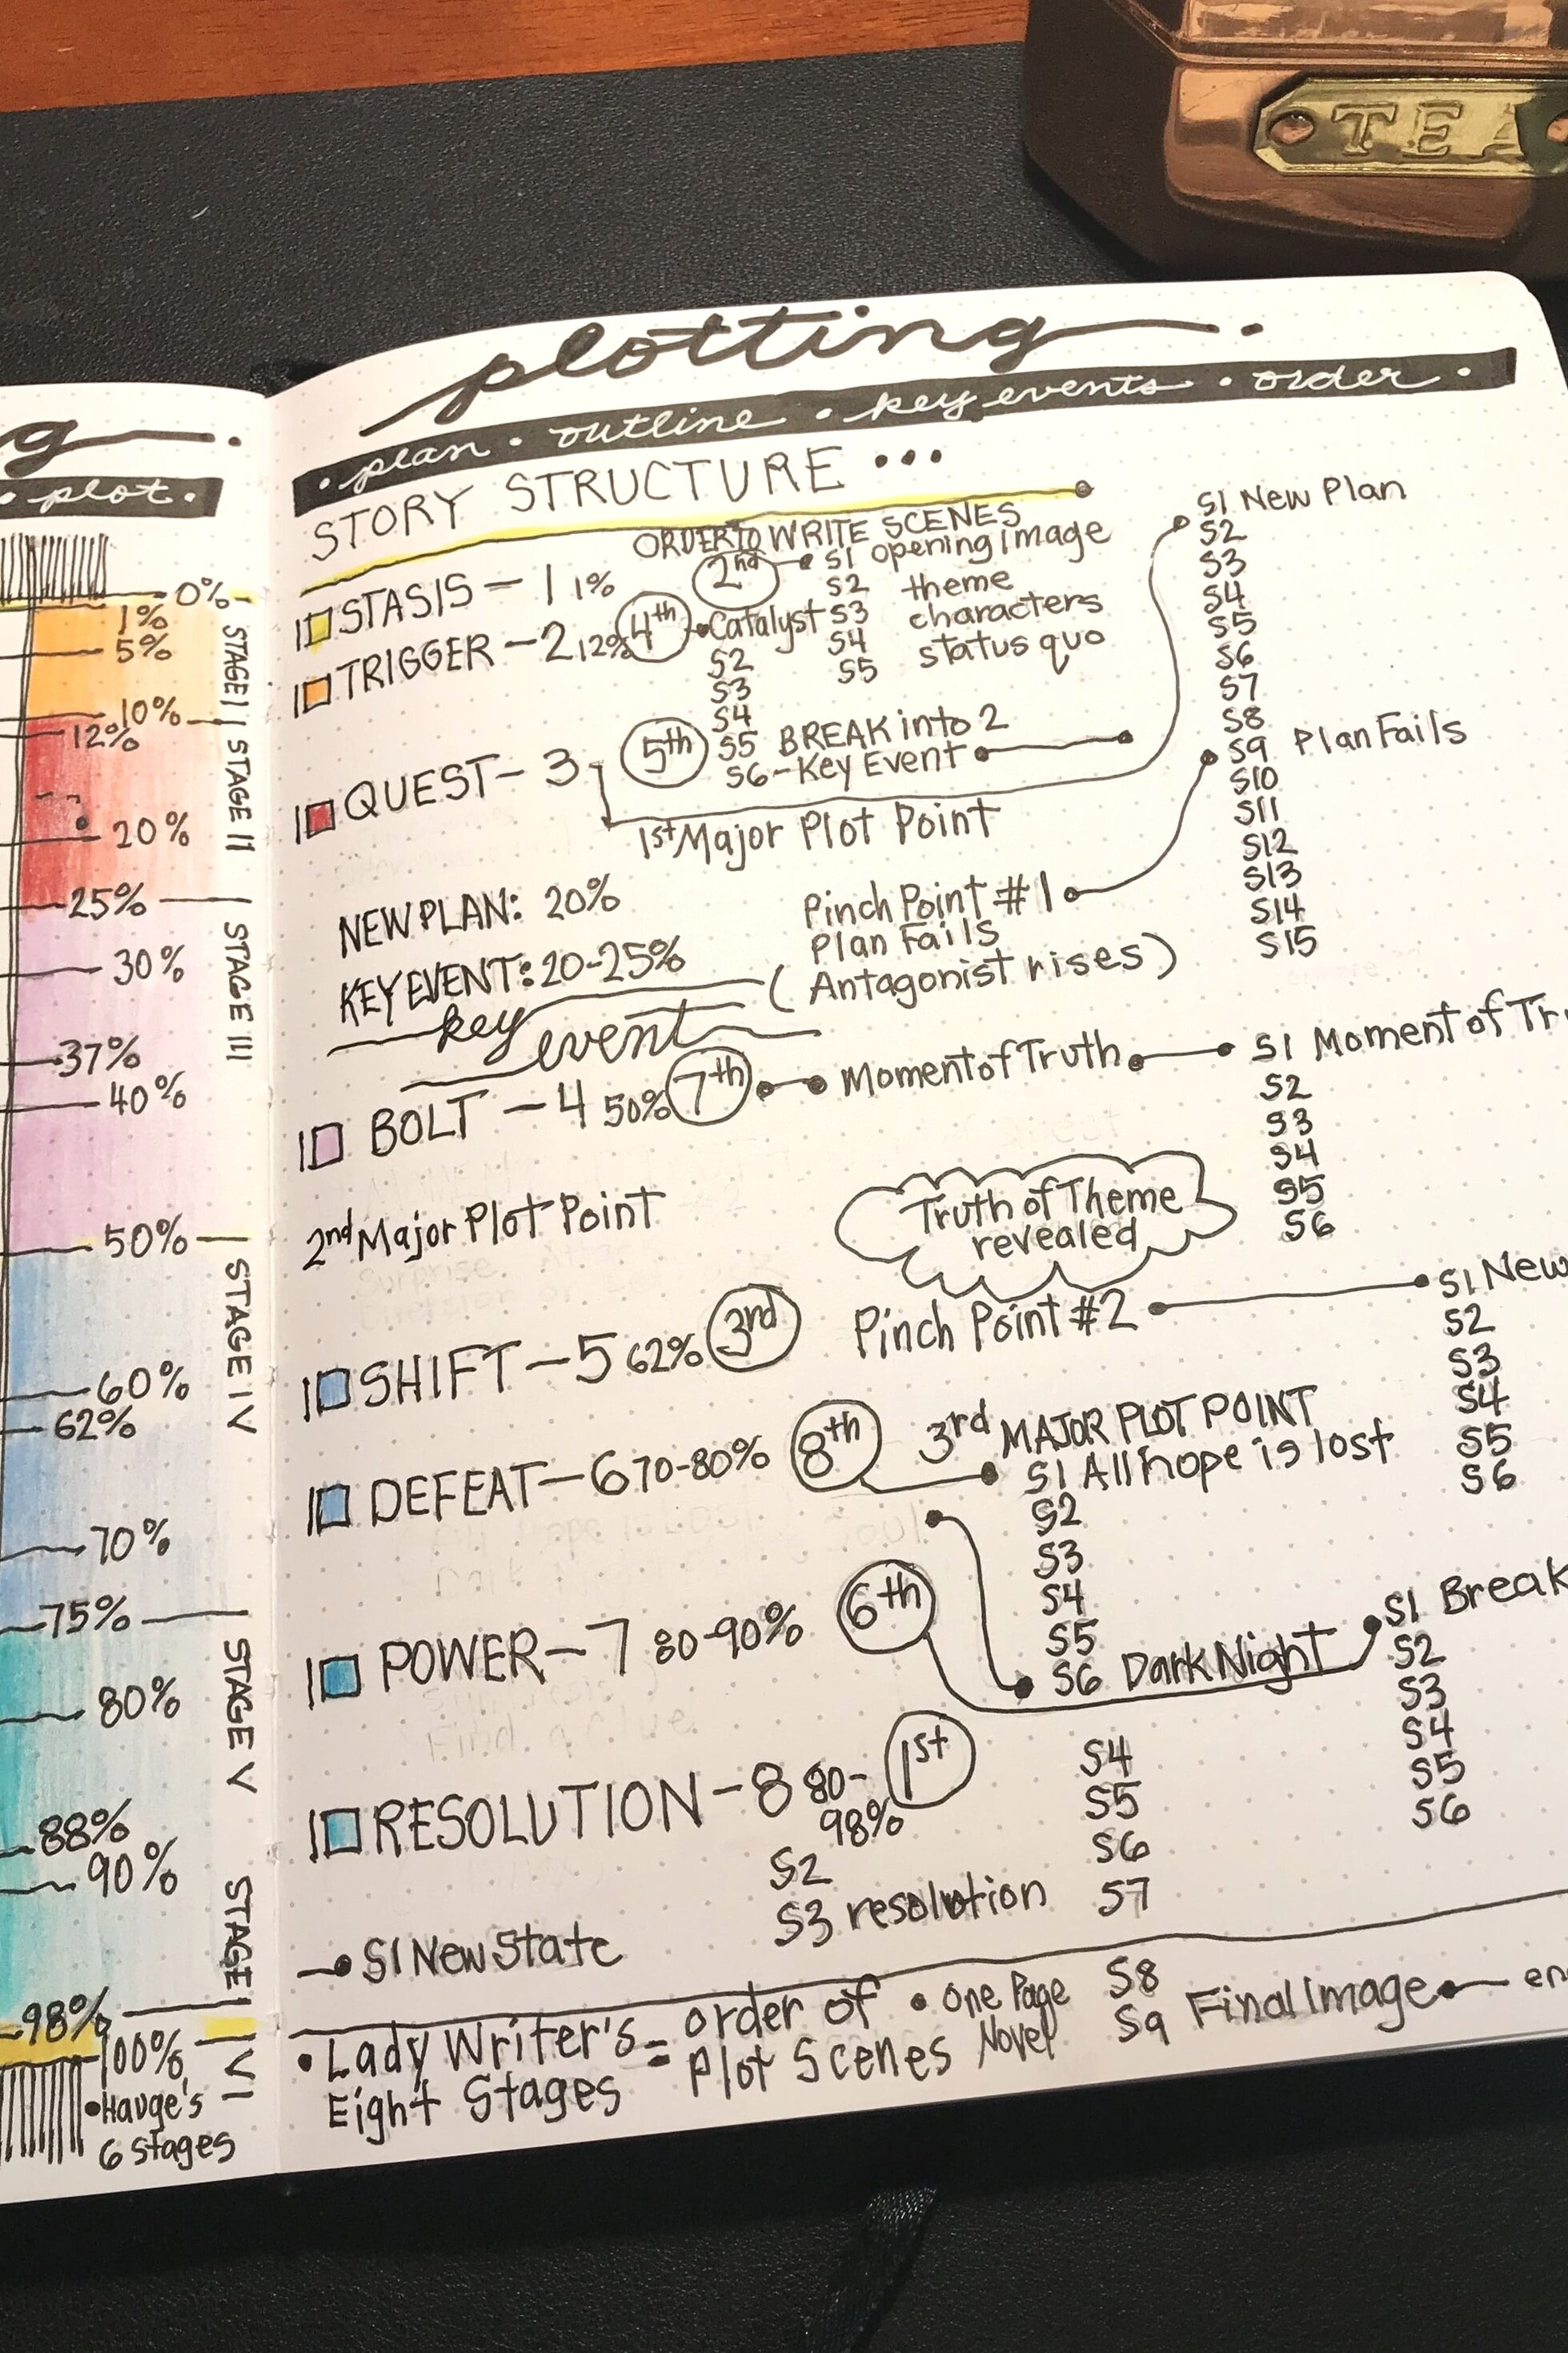 TEA
g
• plot •
0%
1%
5%
10%
12%
20%
25%
30%
37%
40%
50%
60%
62%
70%
75%
80%
88%
90%
98%
100%
STAGE I
STAGE II
STAGE III
STAGE IV
STAGE V
STAGE
VI
• Hauge's
6 stages
plotting.
• plan • outline • key events • order •
STORY STRUCTURE...
ORDER TO WRITE SCENES
STASIS - 1 1%
2nd
S1 opening Image
S2 theme
S3 characters
S4 status quo
S5
TRIGGER - 2 12%
4th
Catalyst
S2
S3
S4
S5 BREAK into 2
S6 - Key Event
QUEST - 3
5th
1st Major Plot Point
S1 New Plan
S2
S3
S4
S5
S6
S7
S8
S9 Plan Fails
S10
S11
S12
S13
S14
S15
NEW PLAN: 20%
KEY EVENT: 20-25%
Pinch Point #1
Plan Fails
(Antagonist rises)
key event
BOLT - 4 50%
7th
Moment of Truth
S1 Moment of Tr
S2
S3
S4
S5
S6
2nd Major Plot Point
Truth of Theme
revealed
SHIFT - 5 62%
3rd
Pinch Point #2
S1 New
S2
S3
S4
S5
S6
DEFEAT - 6 70-80%
8th
3rd MAJOR PLOT POINT
S1 All hope is lost
S2
S3
S4
S5
S6 Dark Night
POWER - 7 80-90%
6th
S1 Break
S2
S3
S4
S5
S6
RESOLUTION - 8 80-
98%
1st
S2
S3 resolution
S4
S5
S6
S7
S8
S9 Final Image
en
S1 New State
• Lady Writer's
Eight Stages
= order of
Plot Scenes
• One Page
Novel